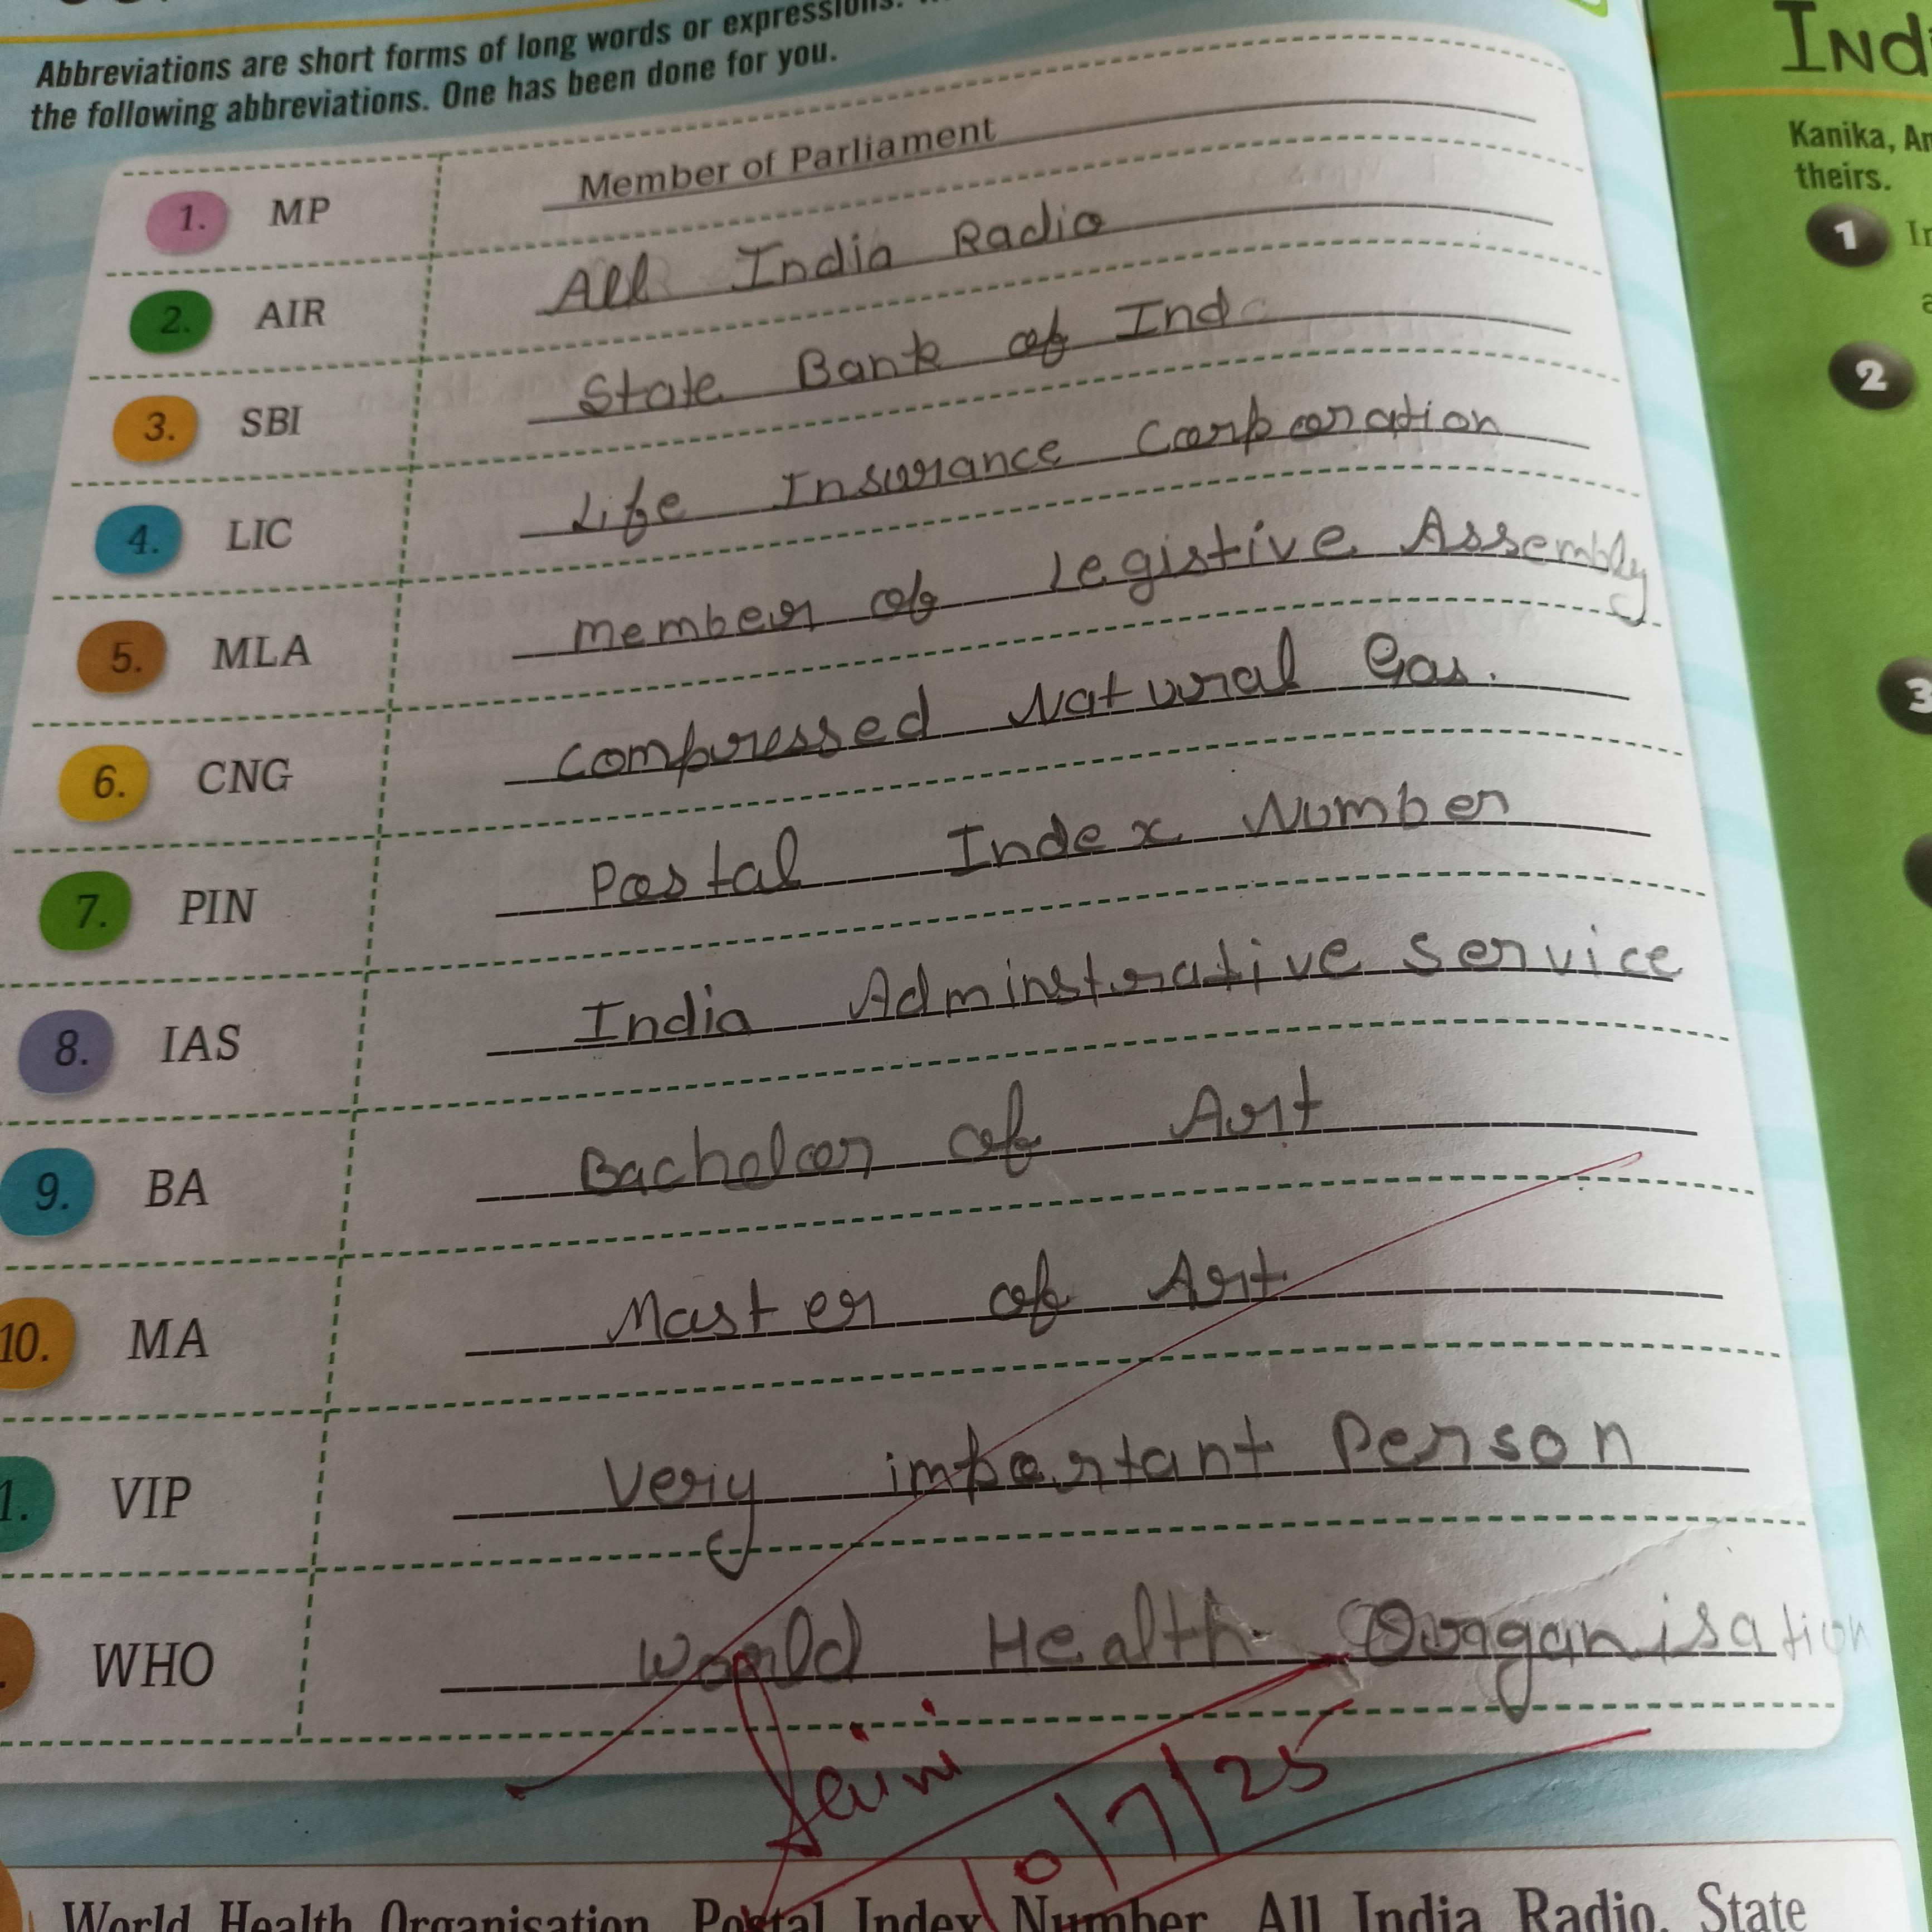 Abbreviations are short forms of long words or expressions.
the following abbreviations. One has been done for you.
1. MP Member of Parliament
2. AIR All India Radio
3. SBI State Bank of Ind
4. LIC Life Insurance Corporation
5. MLA Member of Legistive Assembly
6. CNG Compressed Natural Gas.
7. PIN Postal Index Number
8. IAS India Adminstrative Service
9. BA Bachelor of Art
10. MA Master of Art
1. VIP Very important Person
WHO World Health Organisation
Saini
10/7/25
World Health Organisation, Postal Index Number, All India Radio, State
Kanika,
theirs.
1
2
3